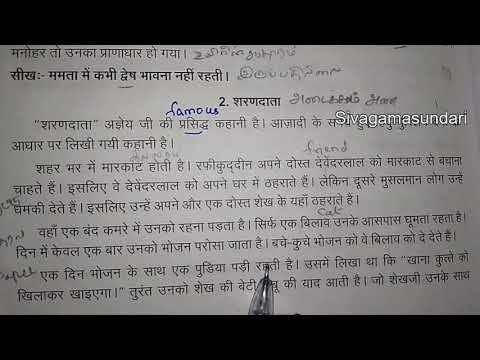 मनोहर तो उनका प्राणाधार हो गया।
सीख:- ममता में कभी द्वेष भावना नहीं रहती।
2. शरणदाता
Sivagamasundari
famous
“शरणदाता” अज्ञेय जी की प्रसिद्ध कहानी है। आज़ादी के
आधार पर लिखी गयी कहानी है।
friend
शहर भर में मारकाट होती है। रफीकुद्दीन अपने दोस्त देवेंदरलाल को मारकाट से बचाना
चाहते हैं। इसलिए वे देवेंदरलाल को अपने घर में ठहराते हैं। लेकिन दूसरे मुसलमान लोग उन्हें
धमकी देते हैं। इसलिए उन्हें अपने और एक दोस्त शेख के यहाँ ठहराते हैं।
Cat
वहाँ एक बंद कमरे में उनको रहना पड़ता है। सिर्फ एक बिलाव उनके आसपास घूमता रहता है।
दिन में केवल एक बार उनको भोजन परोसा जाता है। बचे-कुचे भोजन को वे बिलाव को दे देते हैं।
एक दिन भोजन के साथ एक पुडिया पड़ी रहती है। उसमें लिखा था कि “खाना कुत्ते को
खिलाकर खाइएगा।” तुरंत उनको शेख की बेटी की याद आती है। जो शेखजी उनके साथ